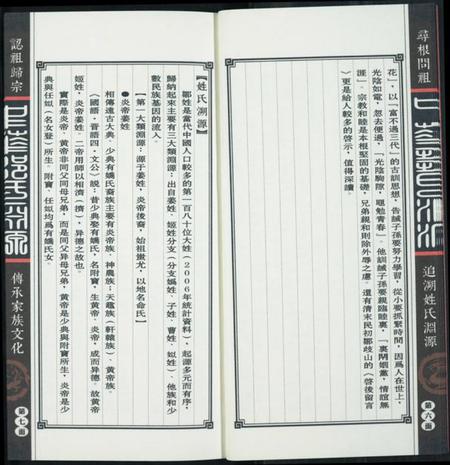 尋根問祖
追溯姓氏淵源
第六面
花﹂，以﹁富不過三代﹂的古訓思想，告誡子孫要努力學習，從小要抓緊時間，因爲人在世上，
光陰如電，忽去便過，﹁光陰駒隙，電勉青春﹂。他訓誡子孫要親臨睦裏，﹁裏閈姻黨，情誼無
涯﹂。宗教和睦是本根堅固的基礎，兄弟親和則除外辱之虞。還有清末民初鄒歧山的︵啓後留言
︶更是給人較多的啓示，值得深讀。
【姓氏溯源】
鄒姓是當代中國人口較多的第一百八十位大姓︵2006年統計資料︶，起源多元而有序，
歸納起來主要有三大類淵源：出自姜姓、姬姓分支︵分支嬀姓、子姓、曹姓、姒姓︶、他族和少
數民族基因的流入。
【第一大類淵源：源于姜姓，炎帝後裔，始祖蚩尤，以地名命氏】
●炎帝姜姓
相傳遠古大典，少典有嬌氏裔族主要有炎帝族、神農族；天黿族︵軒轅族︶、黃帝族。
︵國語·晉語四·文公︶說：昔少典娶有嬌氏，名附寶，生黃帝、炎帝，成而异德。故黃帝
姬姓，炎帝姜姓。二帝用師以相濟︵擠︶，异德之故也。
實際是炎帝、黃帝非同父同母兄弟，而是同父异母兄弟，黃帝是少典與附寶所生，炎帝是少
典與任姒︵名女登︶所生。附寶、任姒均爲有嬌氏女。
認祖歸宗
傳承家族文化
第七面